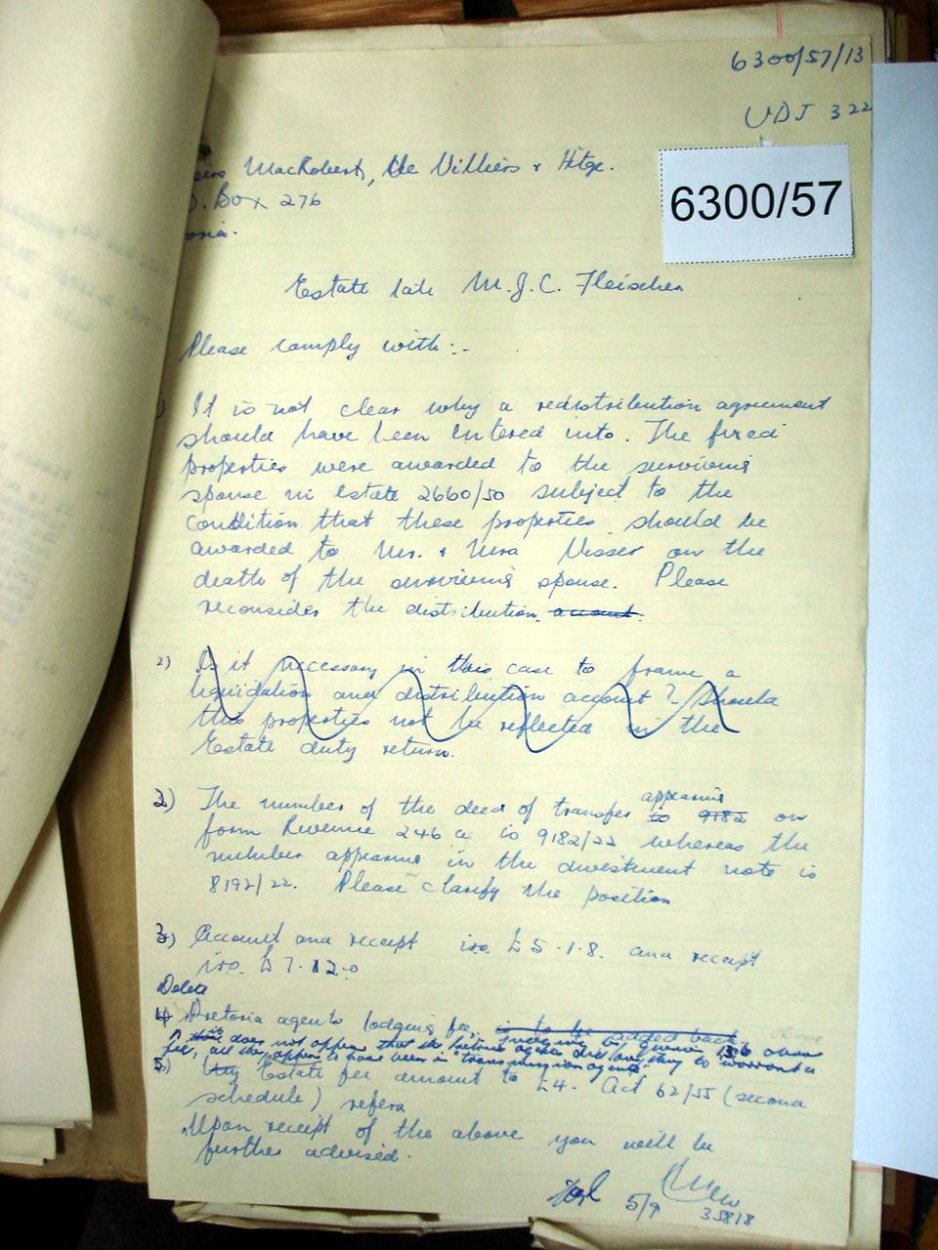 6300/57/13
UDJ 322
6300/57
MacRobert, de Villiers & Hitge.
Box 276
Estate late M.J.C. Fleischer
Please comply with:-
It is not clear why a redistribution agreement
should have been entered into. The fixed
properties were awarded to the surviving
spouse in estate 2660/50 subject to the
condition that these properties should be
awarded to Mr. & Mrs Visser on the
death of the surviving spouse. Please
reconsider the distribution account.
2) Is it necessary in this case to frame a
liquidation and distribution account? Should
the properties not be reflected in the
Estate duty return.
2) The number of the deed of transfer to 9182 appearing on
form Revenue 246 a is 9182/22 whereas the
number appearing in the divestment note is
8192/22. Please clarify the position
3) Account and receipt iro. £5.1.8. and receipt
iro. £7.12.0
Delete
4) Pretoria agents lodging fee, is to be added back.
does not appear that the agents did anything to warrant a
fee, all they appear to have been is "transmission agents"
5) Estate fee amount to £4. Act 62/55 (second
schedule) refers
Upon receipt of the above you will be
further advised.
5/9
35818